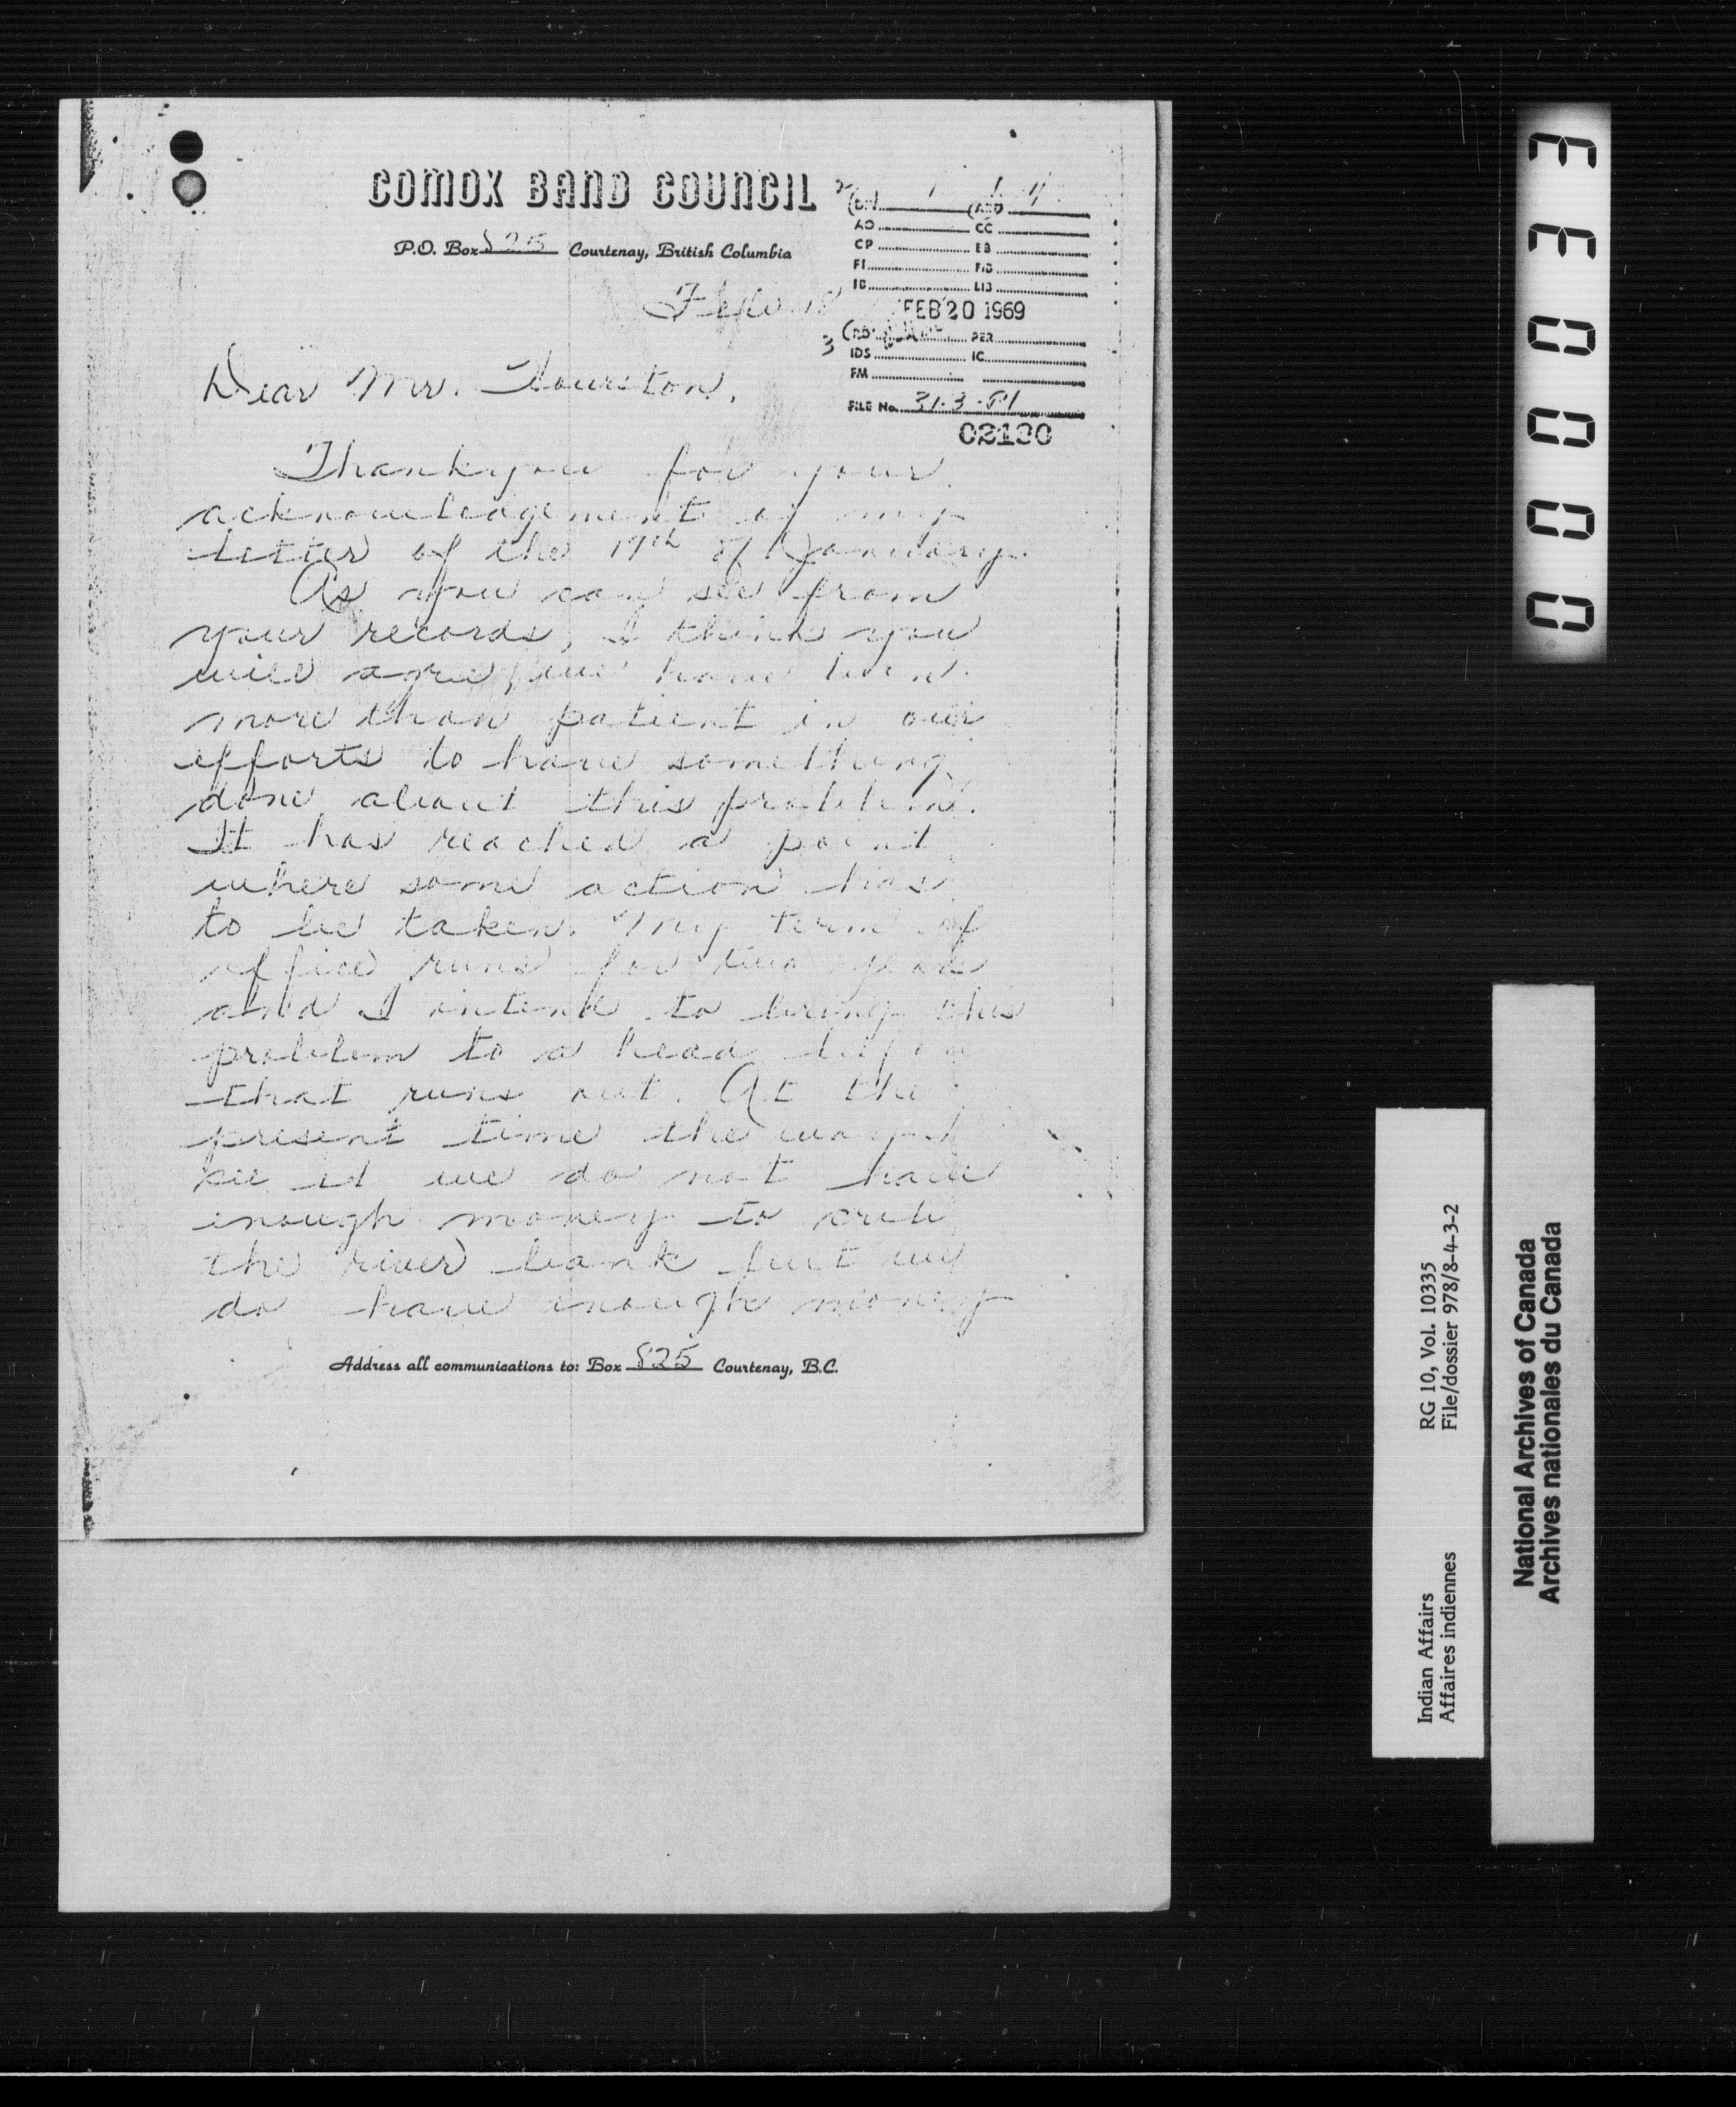 COMOX BAND COUNCIL
P.O. Box 825 Courtenay, British Columbia
AO CC
CP EB
FI FID
IB LIB
Feb. 18
FEB 20 1969
PER
3
IDS IC
FM
FILE No. 31-3-
02130
Dear Mr.
Thankyou for your
acknowledgement of my
letter of the 17th of January.
As you can see from
your records, I think you
will agree we have been
more than patient in our
efforts to have something
done about this problem.
It has reached a point
where some action has
to be taken. My term of
office runs for two years
and I intend to bring this
problem to a head before
that runs out. At the
present time the way I
see it we do not have
enough money to crib
the river bank but we
do have enough money
Address all communications to: Box 825 Courtenay, B.C.
000033
Indian Affairs RG 10, Vol. 10335
Affaires indiennes File/dossier 978/8-4-3-2
National Archives of Canada
Archives nationales du Canada